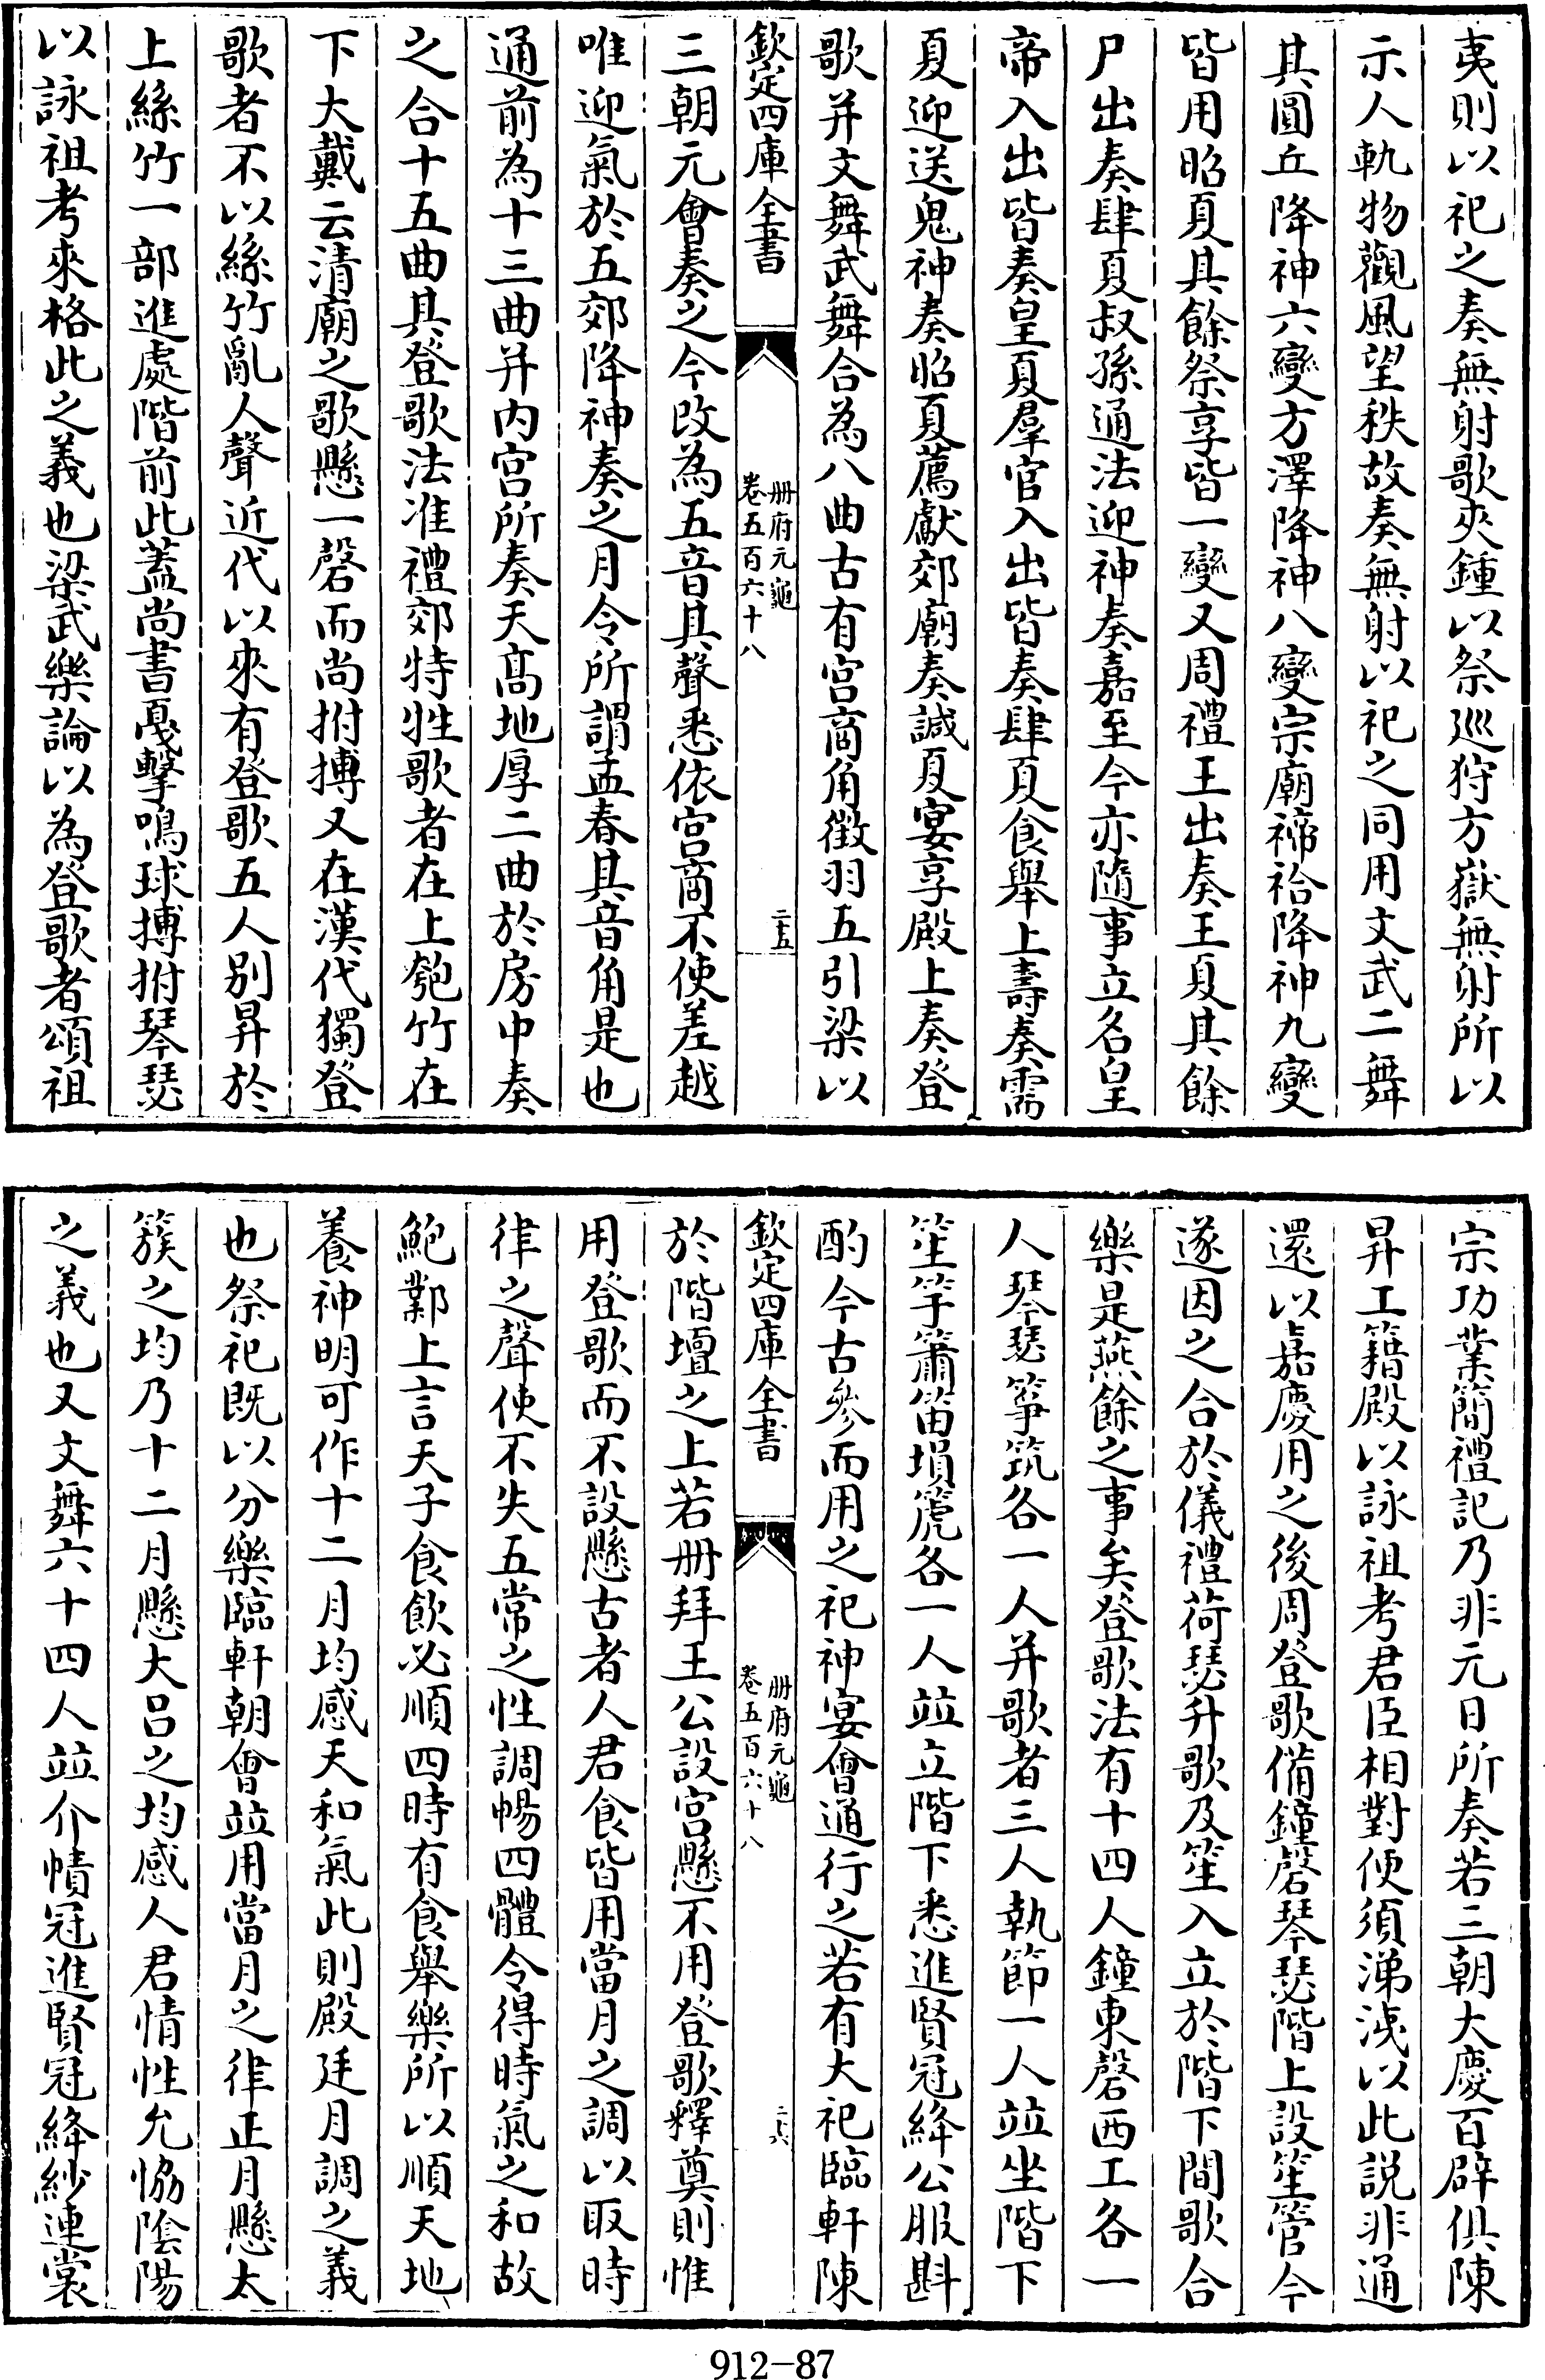 夷則以祀之奏無射歌夾鍾以祭巡狩方嶽無射所以
示人軌物觀風望秩故奏無射以祀之同用文武二舞
其圓丘降神六變方澤降神八變宗廟禘祫降神九變
皆用昭夏其餘祭享皆一變又周禮王出奏王夏其餘
尸出奏肆夏叔孫通法迎神奏嘉至今亦隨事立名皇
帝入出皆奏皇夏羣官入出皆奏肆夏食舉上壽奏需
夏迎送鬼神奏昭夏薦獻郊廟奏諴夏宴享殿上奏登
歌并文舞武舞合為八曲古有宫商角徵羽五引梁以
欽定四庫全書
册府元龜
卷五百六十八
二十五
三朝元會奏之今改為五音其聲悉依宫商不使差越
唯迎氣於五郊降神奏之月令所謂孟春其音角是也
通前為十三曲并内宫所奏天髙地厚二曲於房中奏
之合十五曲其登歌法准禮郊特牲歌者在上匏竹在
下大戴云清廟之歌懸一磬而尚拊搏又在漢代獨登
歌者不以絲竹亂人聲近代以來有登歌五人别昇於
上絲竹一部進處階前此蓋尚書戛擊鳴球搏拊琴瑟
以詠祖考來格此之義也梁武樂論以為登歌者頌祖
宗功業簡禮記乃非元日所奏若三朝大慶百辟俱陳
昇工籍殿以詠祖考君臣相對便須涕洟以此説非通
還以嘉慶用之後周登歌備鐘磬琴瑟階上設笙管今
遂因之合於儀禮荷瑟升歌及笙入立於階下間歌合
樂是燕餘之事矣登歌法有十四人鐘東磬西工各一
人琴瑟筝筑各一人并歌者三人執節一人竝坐階下
笙竽簫笛塤篪各一人竝立階下悉進賢冠絳公服斟
酌今古參而用之祀神宴會通行之若有大祀臨軒陳
欽定四庫全書
册府元龜
卷五百六十八
二十六
於階壇之上若册拜王公設宫懸不用登歌釋奠則惟
用登歌而不設懸古者人君食皆用當月之調以取時
律之聲使不失五常之性調暢四體令得時氣之和故
鮑鄴上言天子食飲必順四時有食舉樂所以順天地
養神明可作十二月均感天和氣此則殿廷月調之義
也祭祀既以分樂臨軒朝會竝用當月之律正月懸太
簇之均乃十二月懸大吕之均感人君情性允恊隂陽
之義也又文舞六十四人竝介幘冠進賢冠絳紗連裳
912-87